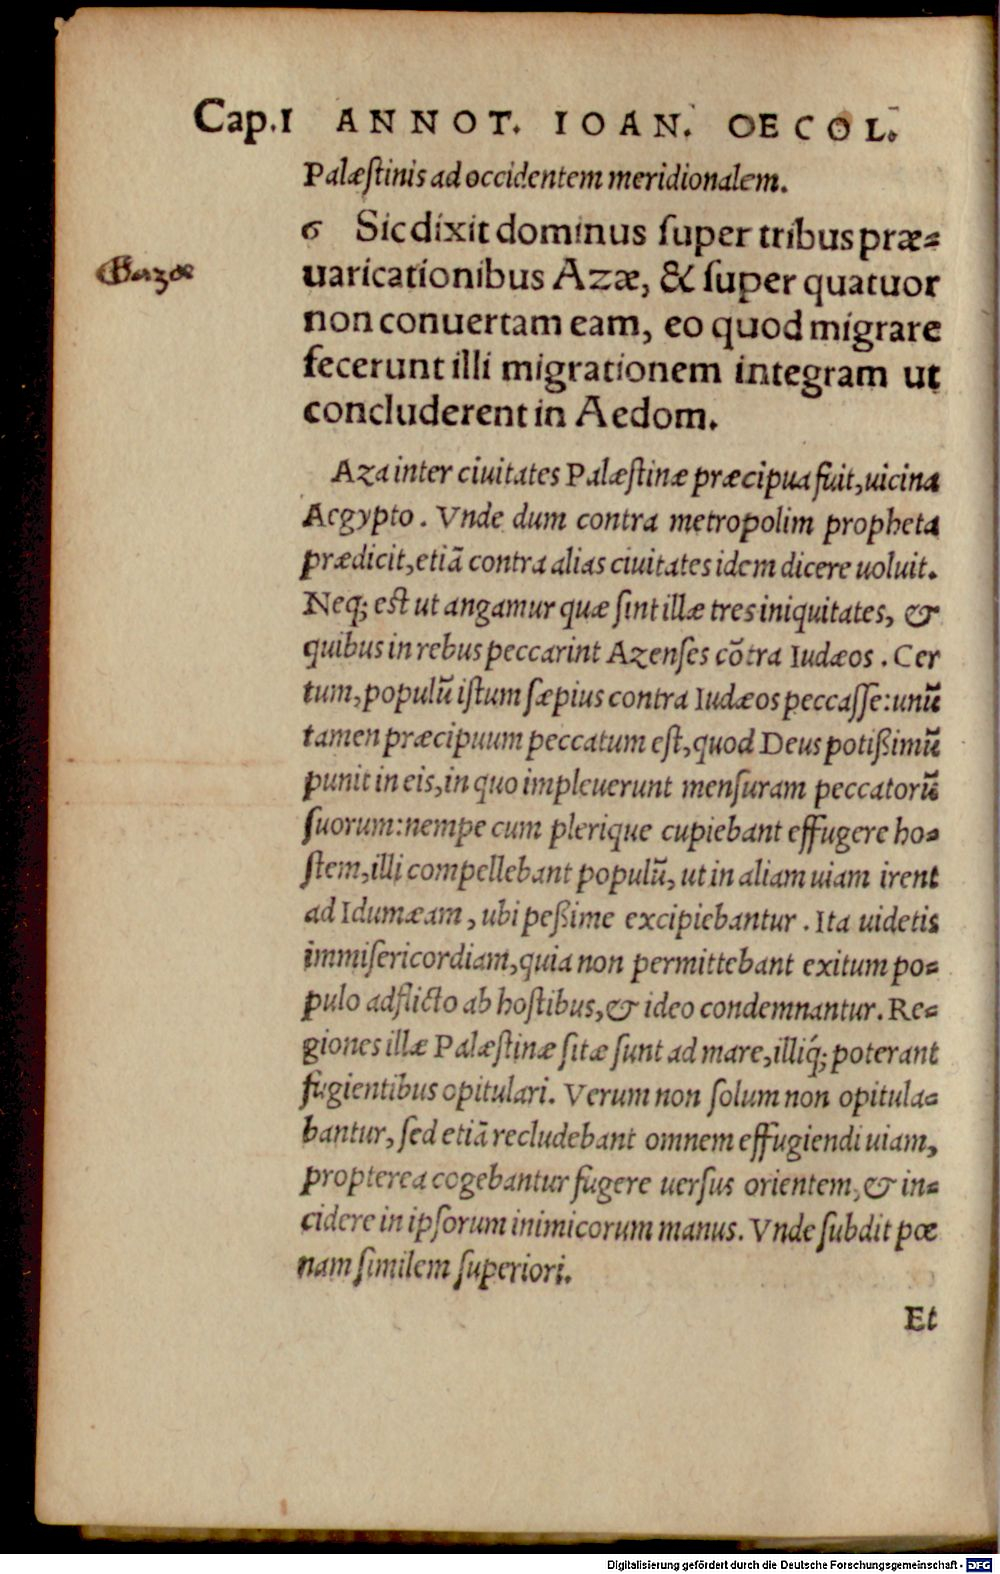 Cap.I ANNOT. IOAN. OECOL.
Palæstinis ad occidentem meridionalem.
6 Sic dixit dominus ſuper tribus præ-
Gazæ
uaricationibus Azæ, & ſuper quatuor
non conuertam eam, eo quod migrare
fecerunt illi migrationem integram ut
concluderent in Aedom.
Aza inter ciuitates Palæſtinæ præcipua fuit, uicina
Aegypto. Vnde dum contra metropolim propheta
prædicit, etiā contra alias ciuitates idem dicere uoluit.
Neq; eſt ut angamur quæ ſint illæ tres iniquitates, &
quibus in rebus peccarint Azenſes cōtra Iudæos. Cer
tum, populū iſtum ſæpius contra Iudæos peccaſſe: unū
tamen præcipuum peccatum eſt, quod Deus potißimū
punit in eis, in quo impleuerunt menſuram peccatorū
ſuorum: nempe cum plerique cupiebant effugere ho-
ſtem, illi compellebant populū, ut in aliam uiam irent
ad Idumæam, ubi peßime excipiebantur. Ita uidetis
immiſericordiam, quia non permittebant exitum po-
pulo adflicto ab hoſtibus, & ideo condemnantur. Re-
giones illæ Palæſtinæ ſitæ ſunt ad mare, illiq́; poterant
fugientibus opitulari. Verum non ſolum non opitula-
bantur, ſed etiā recludebant omnem effugiendi uiam,
propterea cogebantur fugere uerſus orientem, & in-
cidere in ipſorum inimicorum manus. Vnde ſubdit pœ
nam ſimilem ſuperiori.
Et
Digitalisierung gefördert durch die Deutsche Forschungsgemeinschaft - DFG